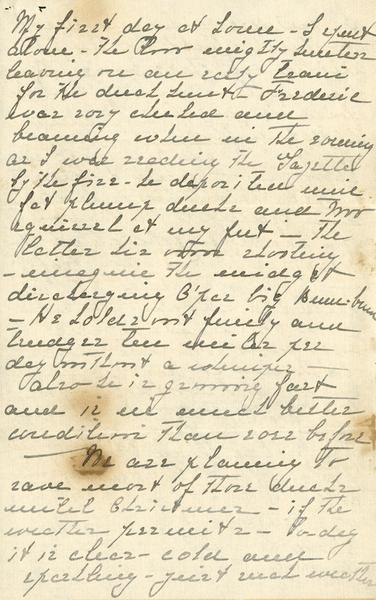 My first day at home - I spent
alone - The two mighty hunters
leaving on an early train
for the duck hunt - Frederic
was very elated and
beaming when in the evening
as I was reading the Gazette
by the fire - he deposited nine
fat plump ducks and two
squirrel at my feet - the
latter his own shooting
- imagine the midget
discharging C'per big Bum-bum
- He holds out finely and
trudges ten miles per
day without a whimper -
Also he is growing fast
and is in much better
condition than ever before -
We are planning to
save most of those ducks
until Christmas - if the
weather permits - To-day
it is clear - cold and
sparkling - just such weather